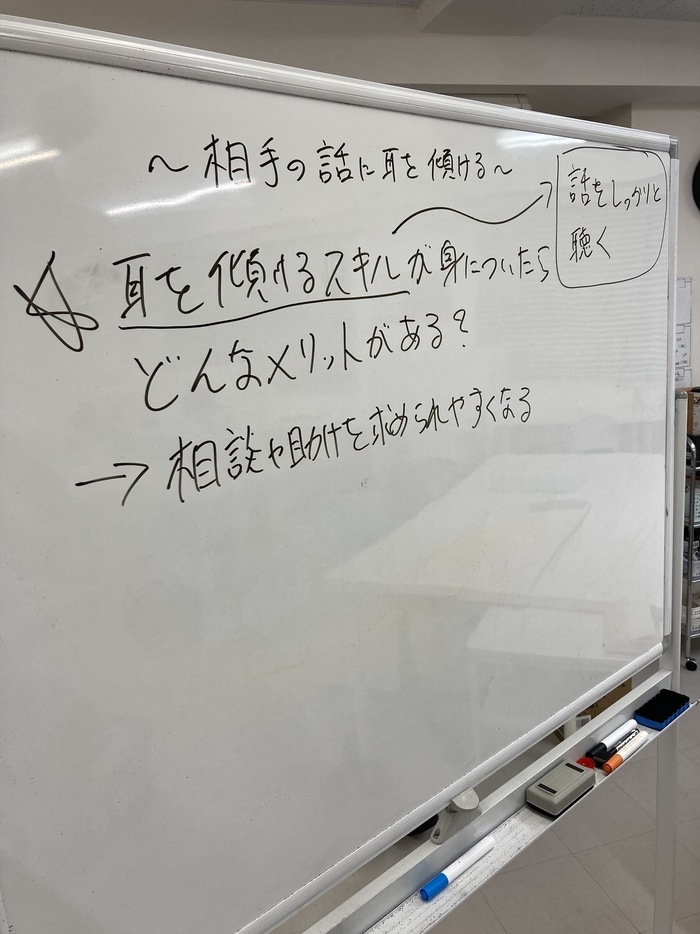 ～相手の話に耳を傾ける～
話をしっかりと
聴く
☆ 耳を傾けるスキルが身についたら
どんなメリットがある？
→ 相談や助けを求められやすくなる